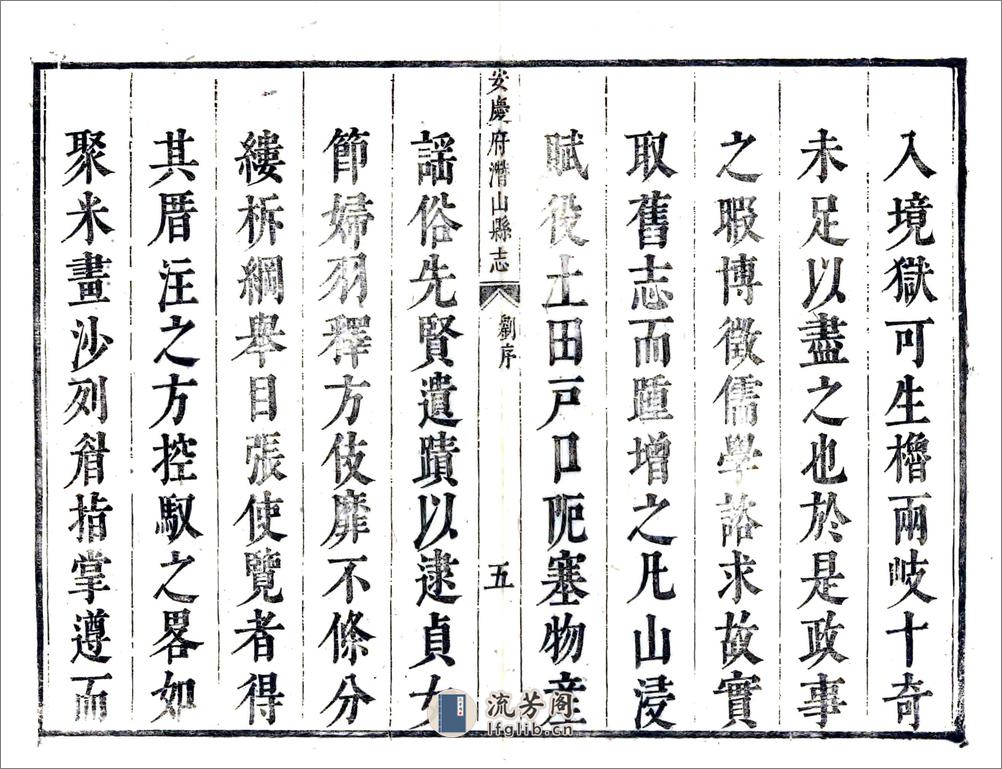 入境獄可生櫓兩岐十奇
未足以盡之也於是政事
之暇博徵儒學諮求故實
取舊志而踵增之凡山浸
賦役土田戸口阨塞物産
安慶府潛山縣志 劉序 五
謡俗先賢遺蹟以逮貞女
節婦羽釋方伎靡不條分
縷柝綱舉目張使覽者得
其厝注之方控馭之畧如
聚米畫沙列眉指掌遵而
流芳阁
lfglib.cn